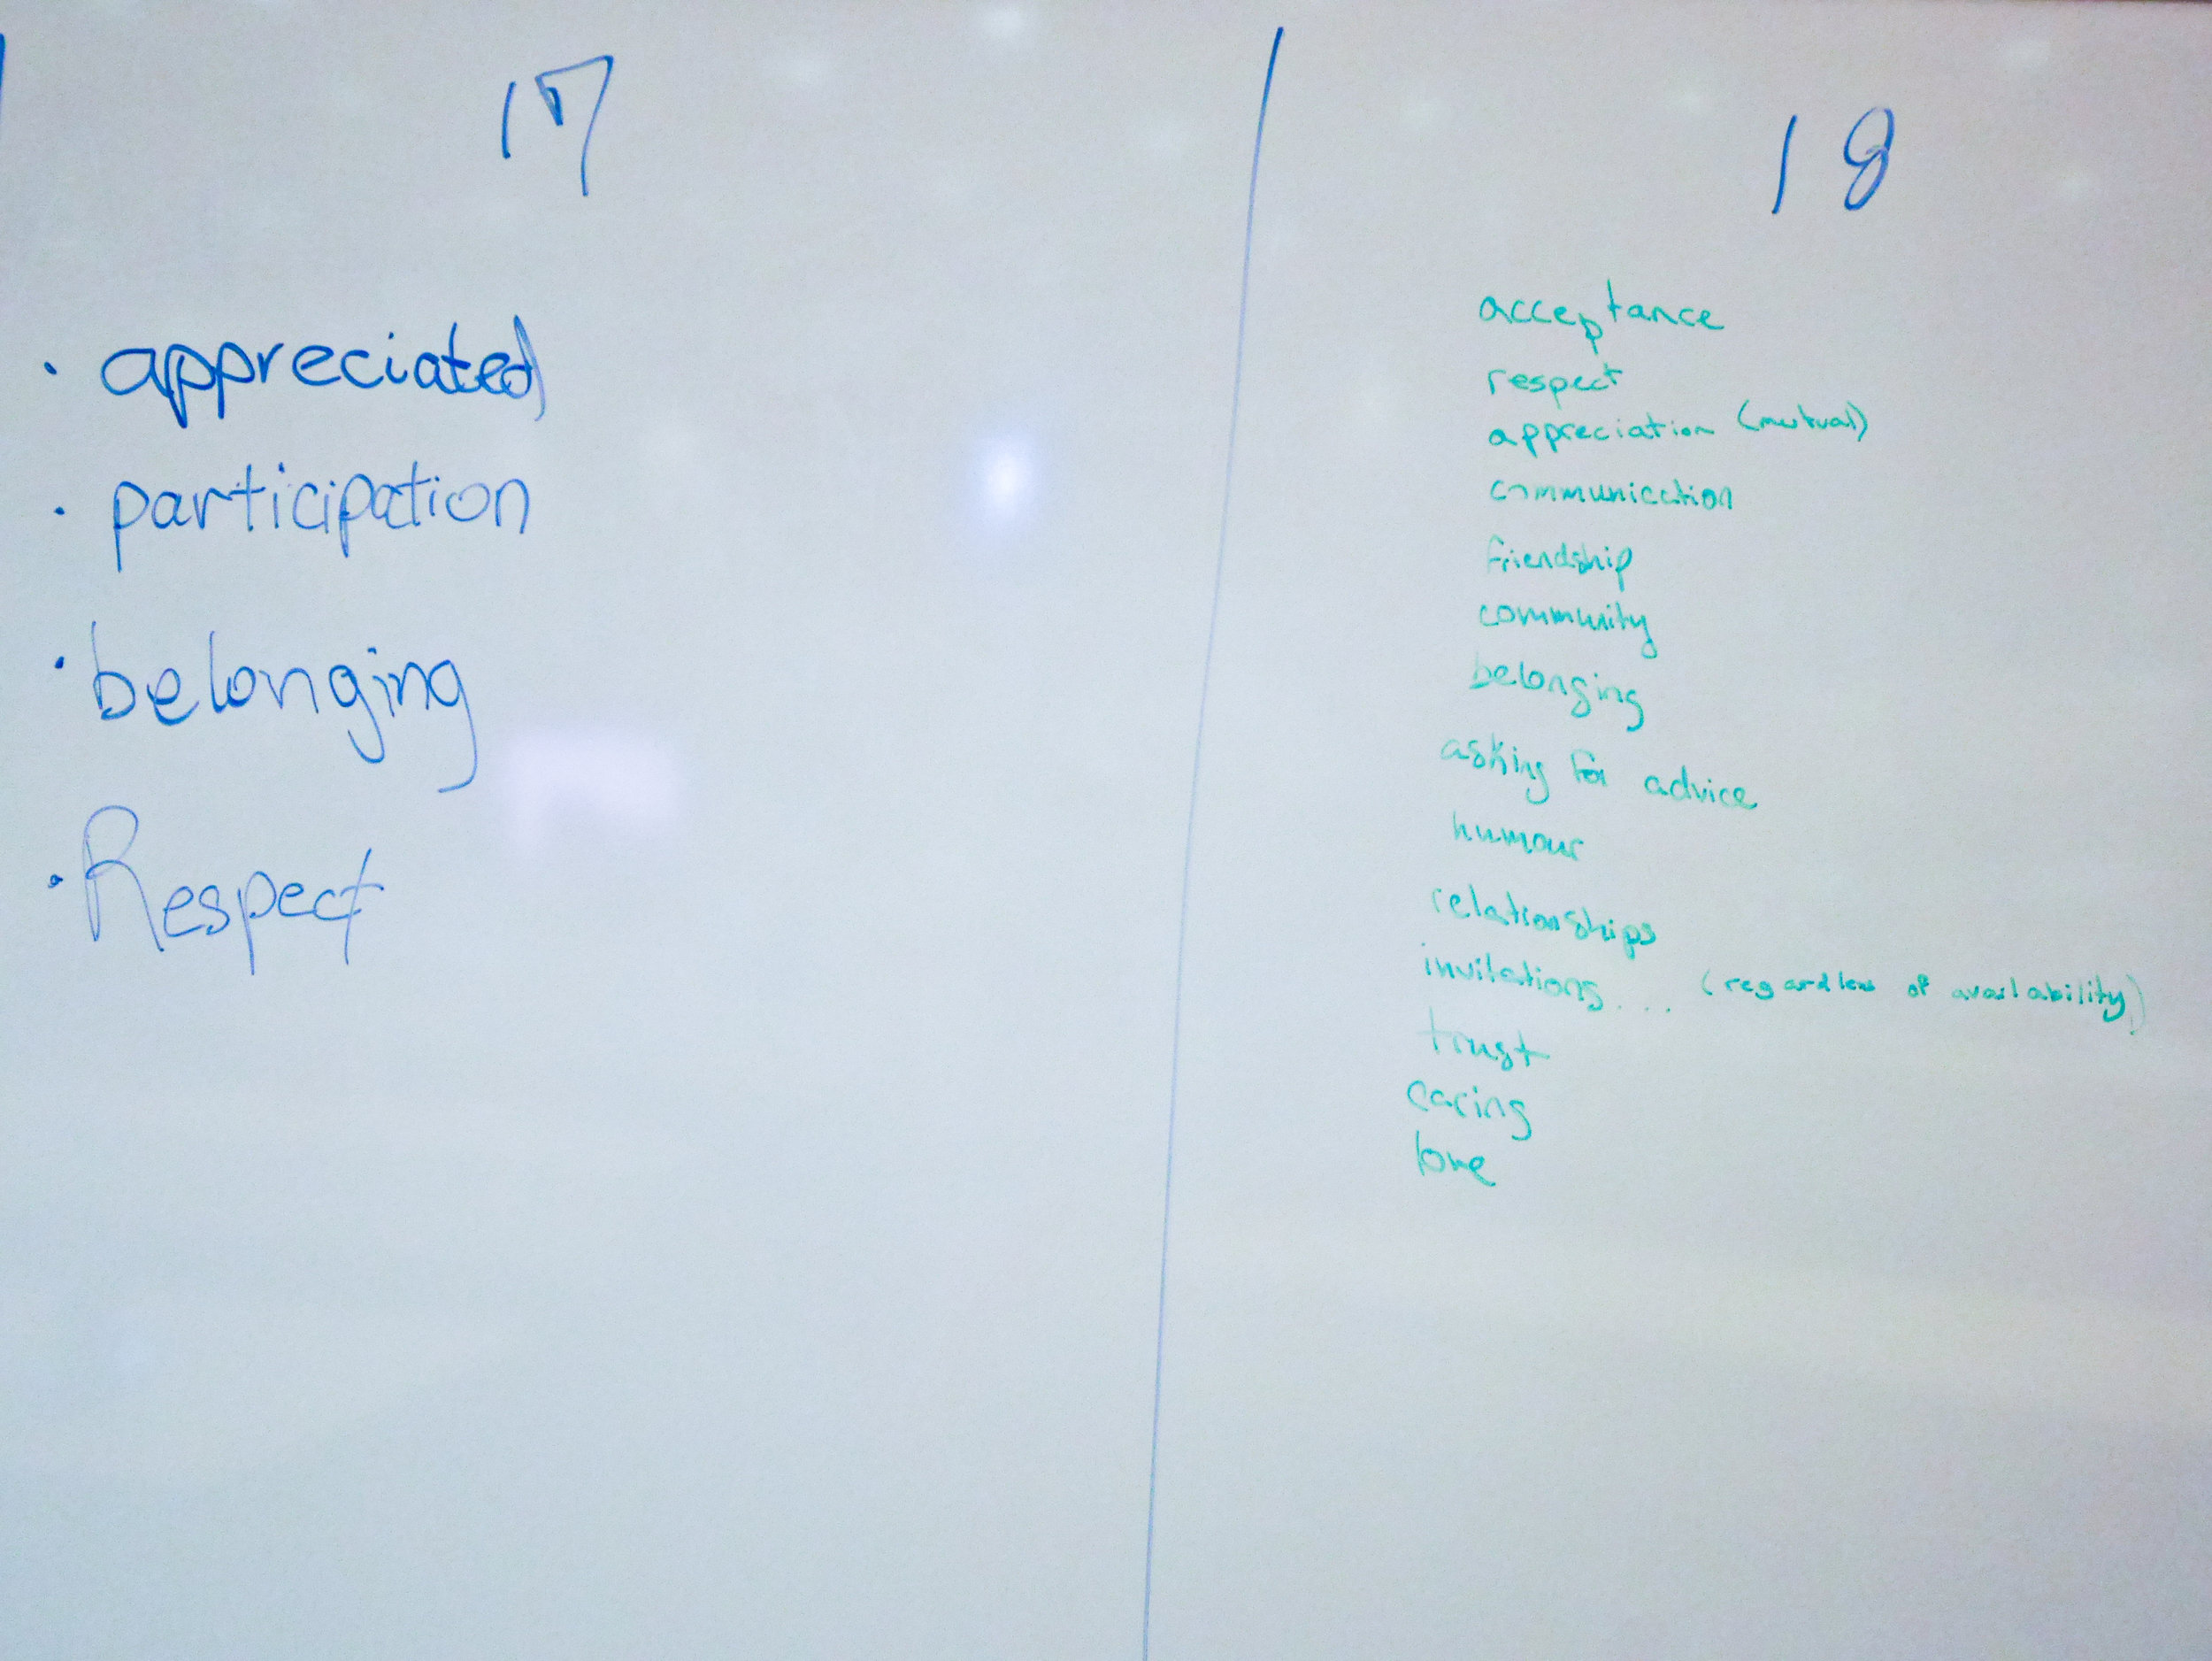 17
· appreciated
· participation
· belonging
· Respect
18
acceptance
respect
appreciation (mutual)
communication
friendship
community
belonging
asking for advice
humour
relationships
invitations... (regardless of availability)
trust
caring
love